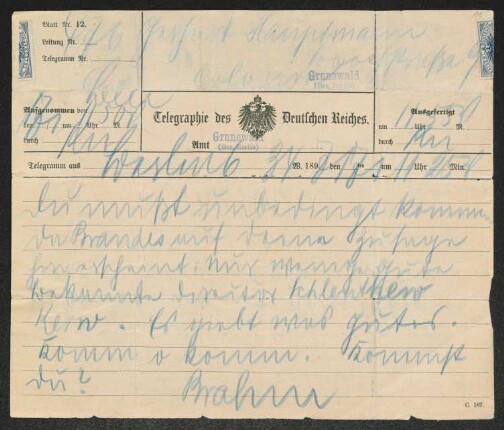 Blatt Nr. 12.
Leitung Nr.
Telegramm Nr.
Gerhart Hauptmann
Grunewald
(Bez. Berlin)
Aufgenommen von
um Uhr M.
durch
Telegraphie des Deutschen Reiches.
Amt Grunewald
(Bez. Berlin)
Ausgefertigt
um Uhr M.
durch
Telegramm aus Berlin W. 189 , den um Uhr Min.
du mußt unbedingt kommen
da Brandes auf deine Zusage
hin erscheint. Nur wenige gute
bekannte director schlenther
Kerr. Es giebt was gutes.
Komm o komm. Kommst
du? Brahm
C. 187.